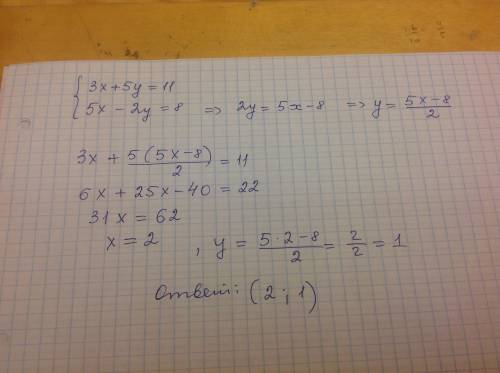 { 3x + 5y = 11
{ 5x - 2y = 8 => 2y = 5x - 8 => y = (5x - 8)/2
3x + 5(5x - 8)/2 = 11
6x + 25x - 40 = 22
31x = 62
x = 2 , y = (5 · 2 - 8)/2 = 2/2 = 1
Ответ: (2 ; 1)